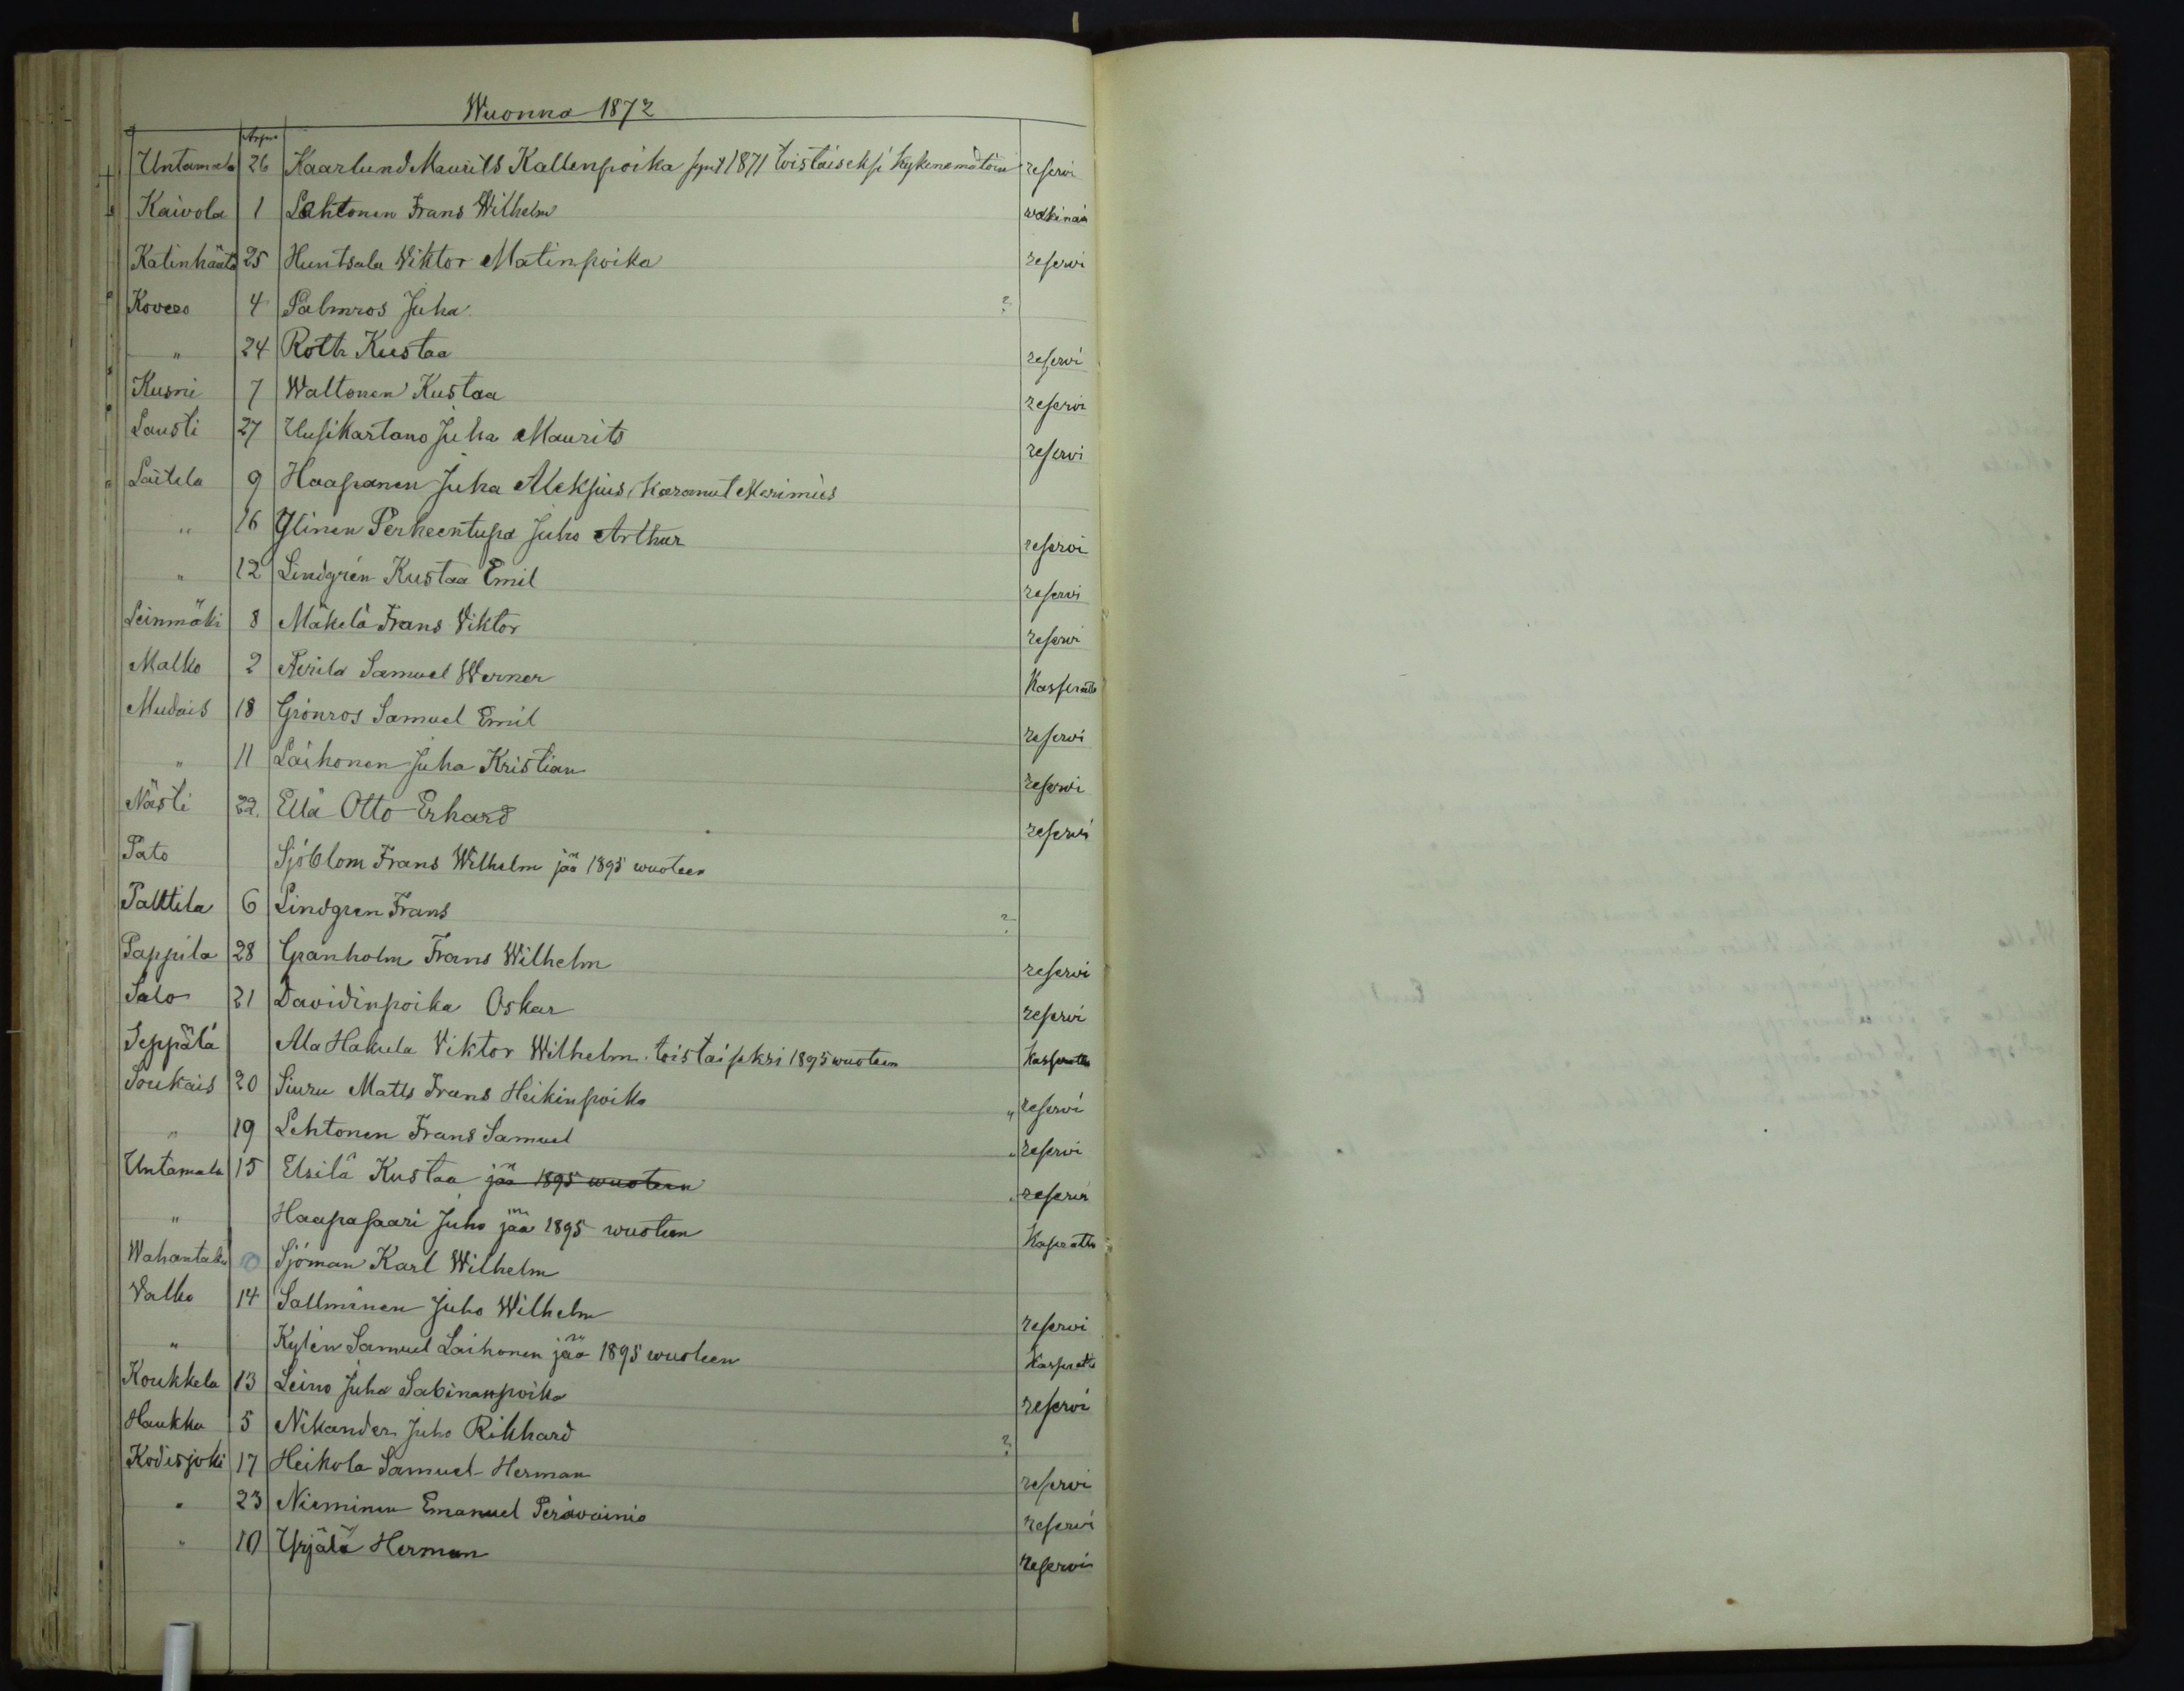 Wuonna 1872
Arpa
Untamala 26 Kaarlund Maurits Kallenpoika synt 1871 toistaiseksi kykenemätöin reservi
Kaivola 1 Lehtonen Frans Wilhelm wakinain
Katinhäntä 25 Huntsala Viktor Matinpoika reservi
Kovero 4 Palmros Juha ?
" 24 Roth Kustaa reservi
Kusni 7 Waltonen Kustaa reservi
Lausti 27 Uusikartano Juha Maurits reservi
Laitila 9 Haapanen Juha Aleksius, karannut Merimies
" 16 Ylinen Perheentupa Juho Arthur reservi
" 12 Lindgrén Kustaa Emil reservi
Leinmäki 8 Mäkelä Frans Viktor reservi
Malko 2 Perila Samuel Werner Kasserattu
Mudais 18 Grönros Samuel Emil reservi
" 11 Laihonen Juha Kristian reservi
Nästi 22. Ellä Otto Erhard reservi
Pato Sjöblom Frans Wilhelm jää 1895 wuoteen
Palttila 6 Lindgren Frans ?
Pappila 28 Granholm Frans Wilhelm reservi
Salo 21 Davidinpoika Oskar reservi
Seppälä Ala Hakula Viktor Wilhelm. toistaiseksi 1895 wuoteen Kasserattu
Soukais 20 Siuru Matts Frans Heikinpoika " reservi
" 19 Lehtonen Frans Samuel " reservi
Untamala 15 Elsilä Kustaa jää 1895 wuoteen " reservi
" Haapasaari Juho jää 1895 wuoteen Kaserattu
Wahantaka Sjöman Karl Wilhelm
Valko 14 Sallminen Juho Wilhelm reservi
" Kylén Samuel Laihonen jää 1895 wuoteen Kasserattu
Koukkela 13 Leino Juha Sabinanpoika reservi
Haukka 5 Nikander Juho Rikhard ?
Kodisjoki 17 Heikola Samuel Herman reservi
" 23 Nieminen Emanuel Perävainio reservi
" 10 Yrjälä Herman reservi